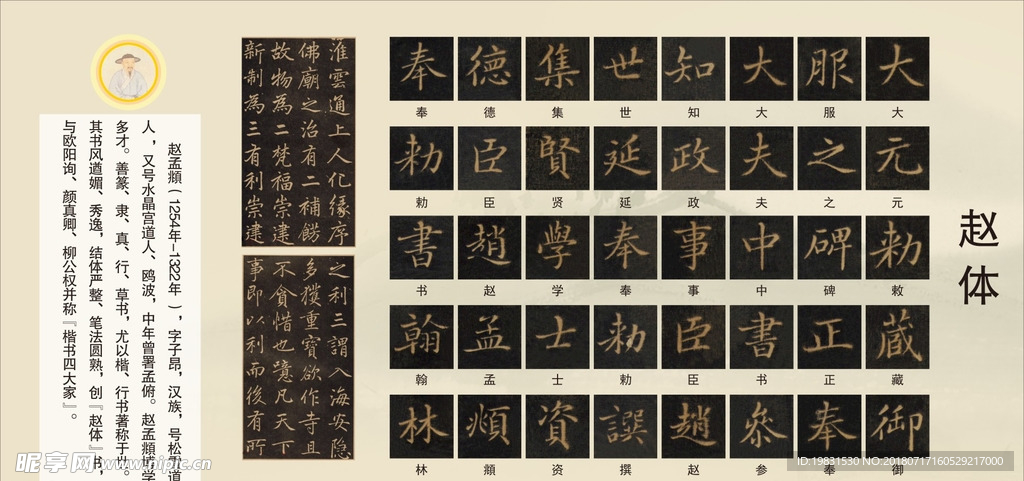 赵体
奉 德 集 世 知 大 服 大
奉 德 集 世 知 大 服 大
勅 臣 賢 延 政 夫 之 元
勅 臣 贤 延 政 夫 之 元
書 趙 學 奉 事 中 碑 勅
书 赵 学 奉 事 中 碑 敕
翰 孟 士 勅 臣 書 正 藏
翰 孟 士 勅 臣 书 正 藏
林 頫 資 譔 趙 參 奉 御
林 頫 资 撰 赵 参 奉 御
淮雲通上人化緣序
佛廟之治有二補餝
故物為二梵福崇建
新制為三有利崇建
之利三謂入海安隐
多獲重寶欲作寺且
不貪惜也噫凡天下
事即以利而後有所
赵孟頫(1254年-1322年),字子昂,汉族,号松雪道
人,又号水晶宫道人、鸥波,中年曾署孟俯。赵孟頫博学
多才。善篆、隶、真、行、草书,尤以楷、行书著称于世。
其书风遒媚、秀逸,结体严整、笔法圆熟,创『赵体』书,
与欧阳询、颜真卿、柳公权并称『楷书四大家』。
昵享网 www.nipic.cn
ID:19831530 NO:20180717160529217000